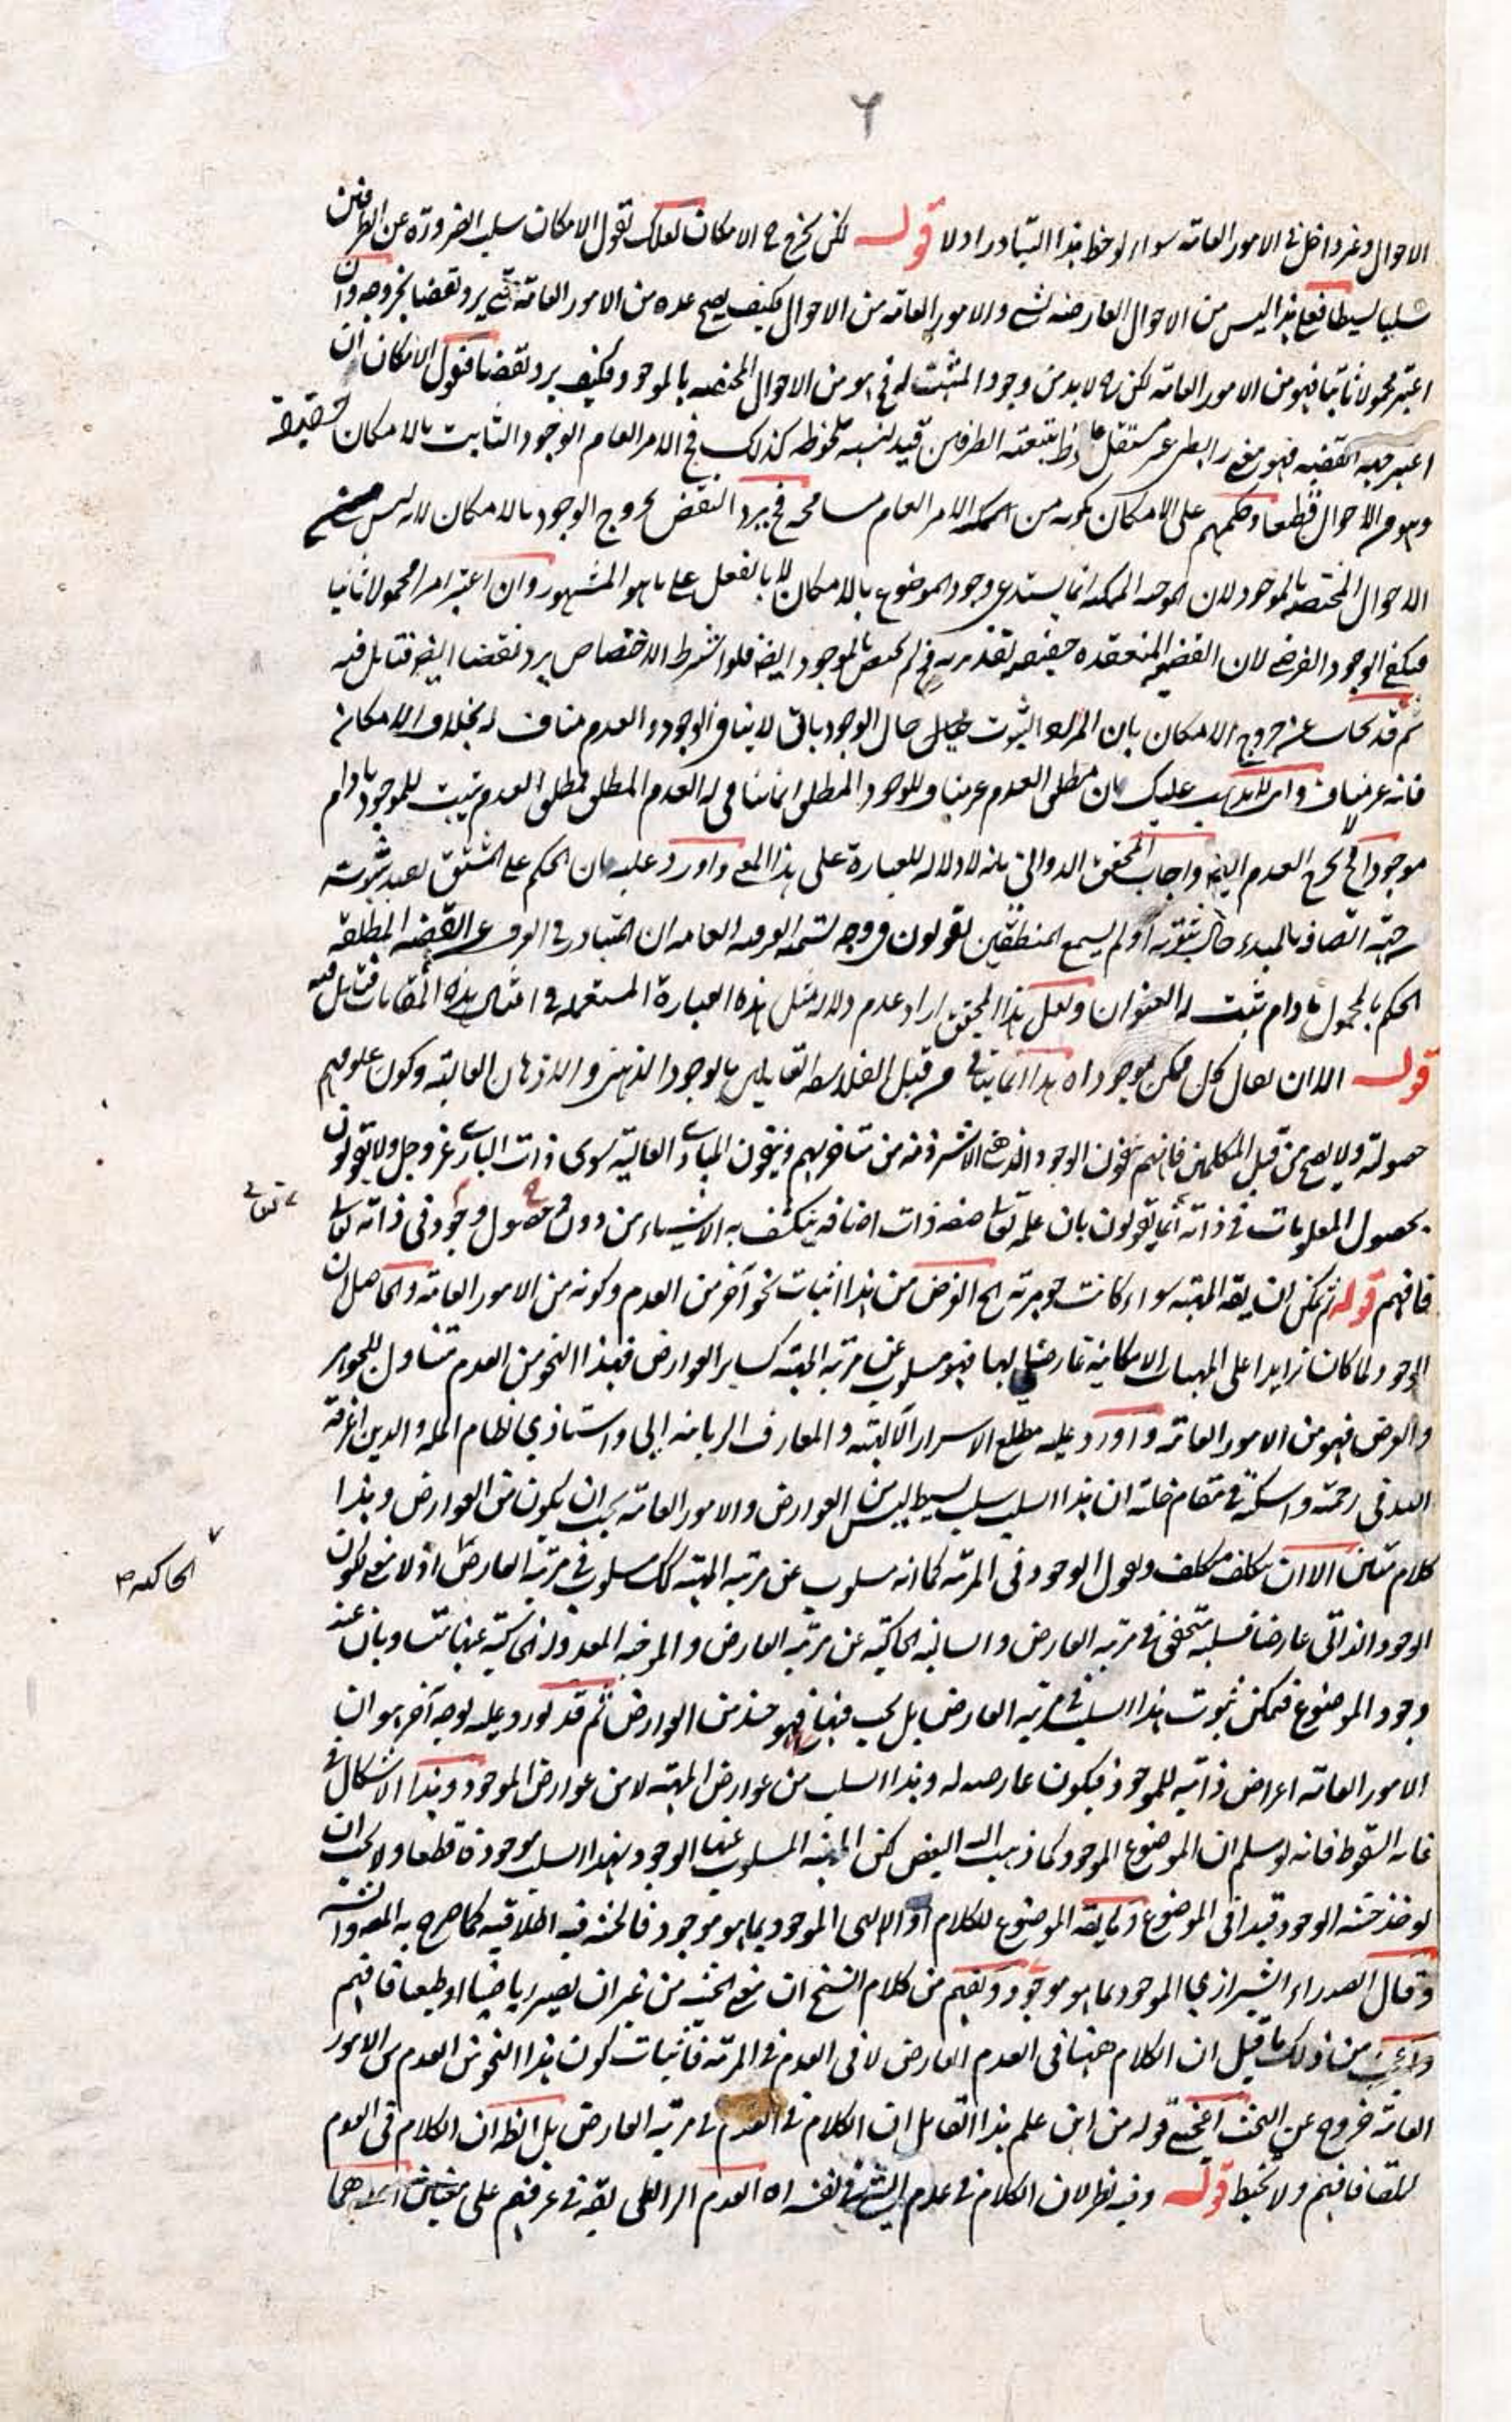 ٦
الاحوال وغير داخل في الامور العامة سواء لوحظ هذا التبادر اولا قوله لكن يخرج ح الامكان لعلك تقول الامكان سلب الضرورة عن الطرفين
سلبا بسيطا فعلى هذا ليس من الاحوال العارضة لشئ والامور العامة من الاحوال فكيف يصح عده من الامور العامة حتى يرد نقضا بخروجه وان
اعتبر محمولا ثابتا فهو من الامور العامة لكن ح لا بد من وجود المثبت له فح هو من الاحوال المختصة بالموجود فكيف يرد نقضا فنقول الامكان ان
اعتبر جهة القضية فهو معنى رابطي غير مستقل الطرفين قيد لنسبة ملحوظة كذلك فح الامر العام الوجود الثابت بالامكان حقيقة
وهو من الاحوال قطعا وحكمهم على الامكان بكونه من الامر العام مسامحة فح يرد النقض بخروج الوجود بالامكان لانه ليس من
الاحوال المختصة بالموجود لان الموجبة الممكنة انما يستدعي وجود الموضوع بالامكان لا بالفعل على ما هو المشهور وان اعتبر امرا محمولا ثابتا
فيكفي الوجود الفرضي لان القضية المنعقدة حقيقية تقديرية فح لم يختص بالموجود ايضا فلو اشترط الاختصاص يرد نقضا ايضا فتامل فيه
ثم قد يجاب عن خروج الامكان بان المراد الثبوت حال الوجود باق لا ينافي الوجود والعدم مناف له بخلاف الامكان
فانه غير مناف وانه لا يذهب عليك بان مطلق العدم غير مناف للوجود المطلق انما ينافي له العدم المطلق فمطلق العدم يثبت للموجود ما دام
موجودا فح يخرج العدم ايضا واجاب المحقق الدواني بانه لا دلالة للعبارة على هذا المعنى واورد عليه بان الحكم على المشتق يفيد ثبوته
حال ثبوته اولم يسمع المنطقيين يقولون في وجه تسمية العرفية العامة ان المتبادر في العرف عن القضية المطلقة
الحكم بالمحمول ما دام يثبت له العنوان ولعل هذا المحقق اراد عدم دلالة مثل هذه العبارة المستعملة في امثال هذه المقامات فتامل فيه
قوله الا ان يقال كل ممكن موجود اه هذا انما يتاتى من قبل الفلاسفة القايلين بالوجود الذهني والاذهان العالية وكون علومهم
حصولية ولا يصح من قبل المتكلمين فانهم ينفون الوجود الذهني الا شرذمة من متاخريهم وينفون المبادي العالية سوى ذات الباري عز وجل ولا يقولون
بحصول المعلومات في ذاته انما يقولون بان علمه تعالى صفة ذات اضافة ينكشف به الاشياء من دون حصول وجود في ذاته تعالى
تعالى
فافهم قوله ثم يمكن ان يقال المهية سواء كانت جوهرية الخ الغرض من هذا اثبات نحو آخر من العدم وكونه من الامور العامة والحاصل ان
الوجود لما كان زايدا على المهيات الامكانية عارضا لها فهو مسلوب عن مرتبة المهية كساير العوارض فهذا النحو من العدم متناول للجواهر
والعرض فهو من الامور العامة واورد عليه مطلع الاسرار الآلهية والمعارف الربانية ابي واستاذي نظام الملة والدين اغرقه
الله في رحمته واسكنه في مقام خلته ان هذا السلب سلب بسيط ليس من العوارض والامور العامة يجب ان يكون من العوارض وهذا
كلام متين الا ان يتكلف متكلف ويقول الوجود في المرتبة كما انه مسلوب عن مرتبة المهية كك مسلوب في مرتبة العارض اذ لا معنى لكون
الحاكية
الوجود الذاتي عارضا فسلبه متحقق في مرتبة العارض والسالبة الحاكية عن مرتبة العارض والموجبة المعدولة الحاكية عنها متساويان عند
وجود الموضوع فيمكن ثبوت هذا السلب في مرتبة العارض بل يجب فهو حينئذ من العوارض ثم قد يورد عليه بوجه آخر هو ان
الامور العامة اعراض ذاتية للموجود فيكون عارضة له وهذا السلب من عوارض المهية لا من عوارض الموجود وهذا الاشكال في
غاية السقوط فانه لو سلم ان الموضوع الموجود كما ذهب اليه البعض لكن المهية المسلوب عنها الوجود بهذا السلب موجودة قطعا ولا يجب ان
يوخذ حيثية الوجود قيدا في الموضوع وما يقال الموضوع للكلام او الالهي الموجود بما هو موجود فالحيثية فيه اطلاقية كما صرح به
وقال الصدر الشيرازي الموجود بما هو موجود ويفهم من كلام الشيخ ان معنى الحيثية من غير ان يصير رياضيا او طبيعيا فافهم
واعجب من ذلك ما قيل ان الكلام ههنا في العدم العارض لا في العدم في المرتبة فاثبات كون هذا النحو من العدم من الامور
العامة خروج عن البحث قوله من اين علم هذا القايل ان الكلام في العدم في مرتبة العارض بل الظ ان الكلام في العدم
مطلقا فافهم ولا تخبط قوله وفيه نظر لان الكلام في عدم الشئ في نفسه اه العدم يقال في عرفهم على معنيين احدهما